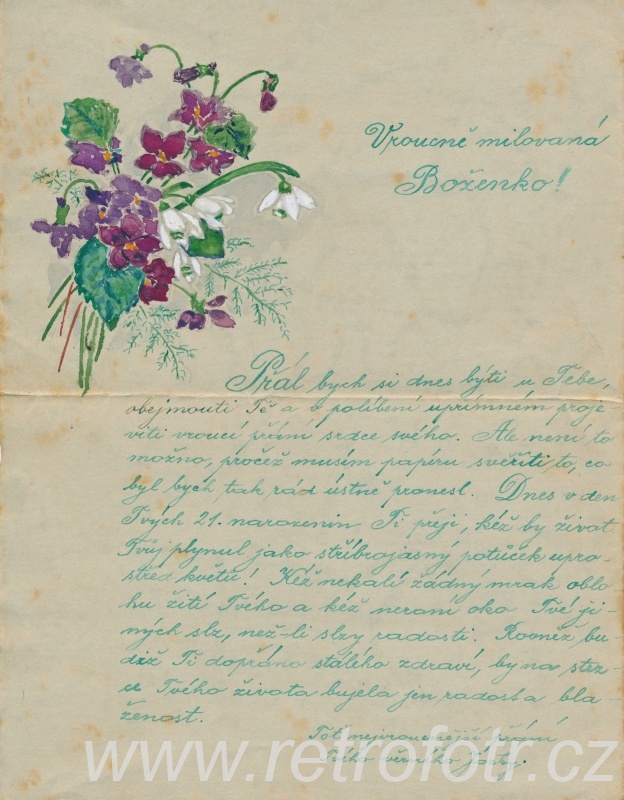 Vroucně milovaná
Boženko!
Přál bych si dnes býti u Tebe,
obejmouti Tě a v políbení upřímném proje
viti vroucí přání srdce svého. Ale není to
možno, pročež musím papíru svěřiti to, co
byl bych tak rád ústně pronesl. Dnes v den
Tvých 21. narozenin Ti přeji, kéž by život
Tvůj plynul jako stříbrojasný potůček upro-
střed květů! Kéž nekalí žádný mrak oblo
hu žití Tvého a kéž neraní oko Tvé ji-
ných slz, než-li slzy radosti. Rovněž bu-
diž Ti dopřáno stálého zdraví, by na stez-
ce Tvého života bujela jen radost a bla
ženost.
Toť nejvroucnější přání
Tvého věrného
www.retrofotr.cz